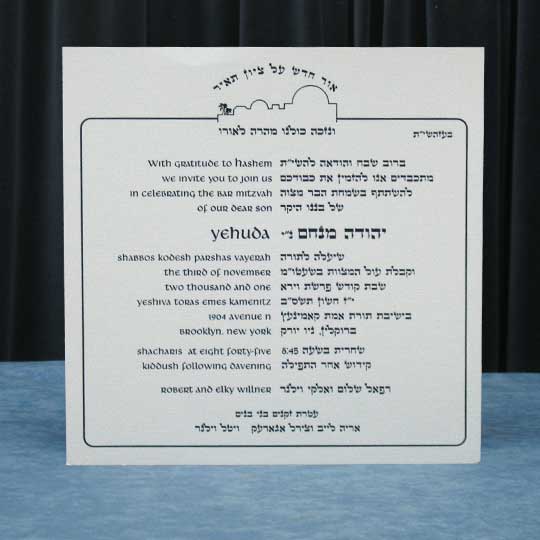 אור חדש על ציון תאיר
ונזכה כולנו מהרה לאורו
בעזהשי״ת
With gratitude to Hashem
we invite you to join us
in celebrating the Bar Mitzvah
of our dear son
Yehuda
Shabbos Kodesh Parshas Vayerah
the third of November
two thousand and one
Yeshiva Toras Emes Kamenitz
1904 Avenue N
Brooklyn, New York
Shacharis at eight forty-five
Kiddush following davening
Robert and Elky Willner
ברוב שבח והודאה להשי״ת
מתכבדים אנו להזמין את כבודכם
להשתתף בשמחת הבר מצוה
של בננו היקר
יהודה מנחם נ״י
שיעלה לתורה
וקבלת עול המצוות בשעטו״מ
שבת קודש פרשת וירא
י״ז חשון תשס״ב
בישיבת תורה אמת קאמינעץ
ברוקלין, ניו יורק
שחרית בשעה 8:45
קידוש אחר התפילה
רפאל שלום ואלקי וילנר
עטרת זקנים בני בנים
אריה לייב וצירל אגארעק ויטל וילנר